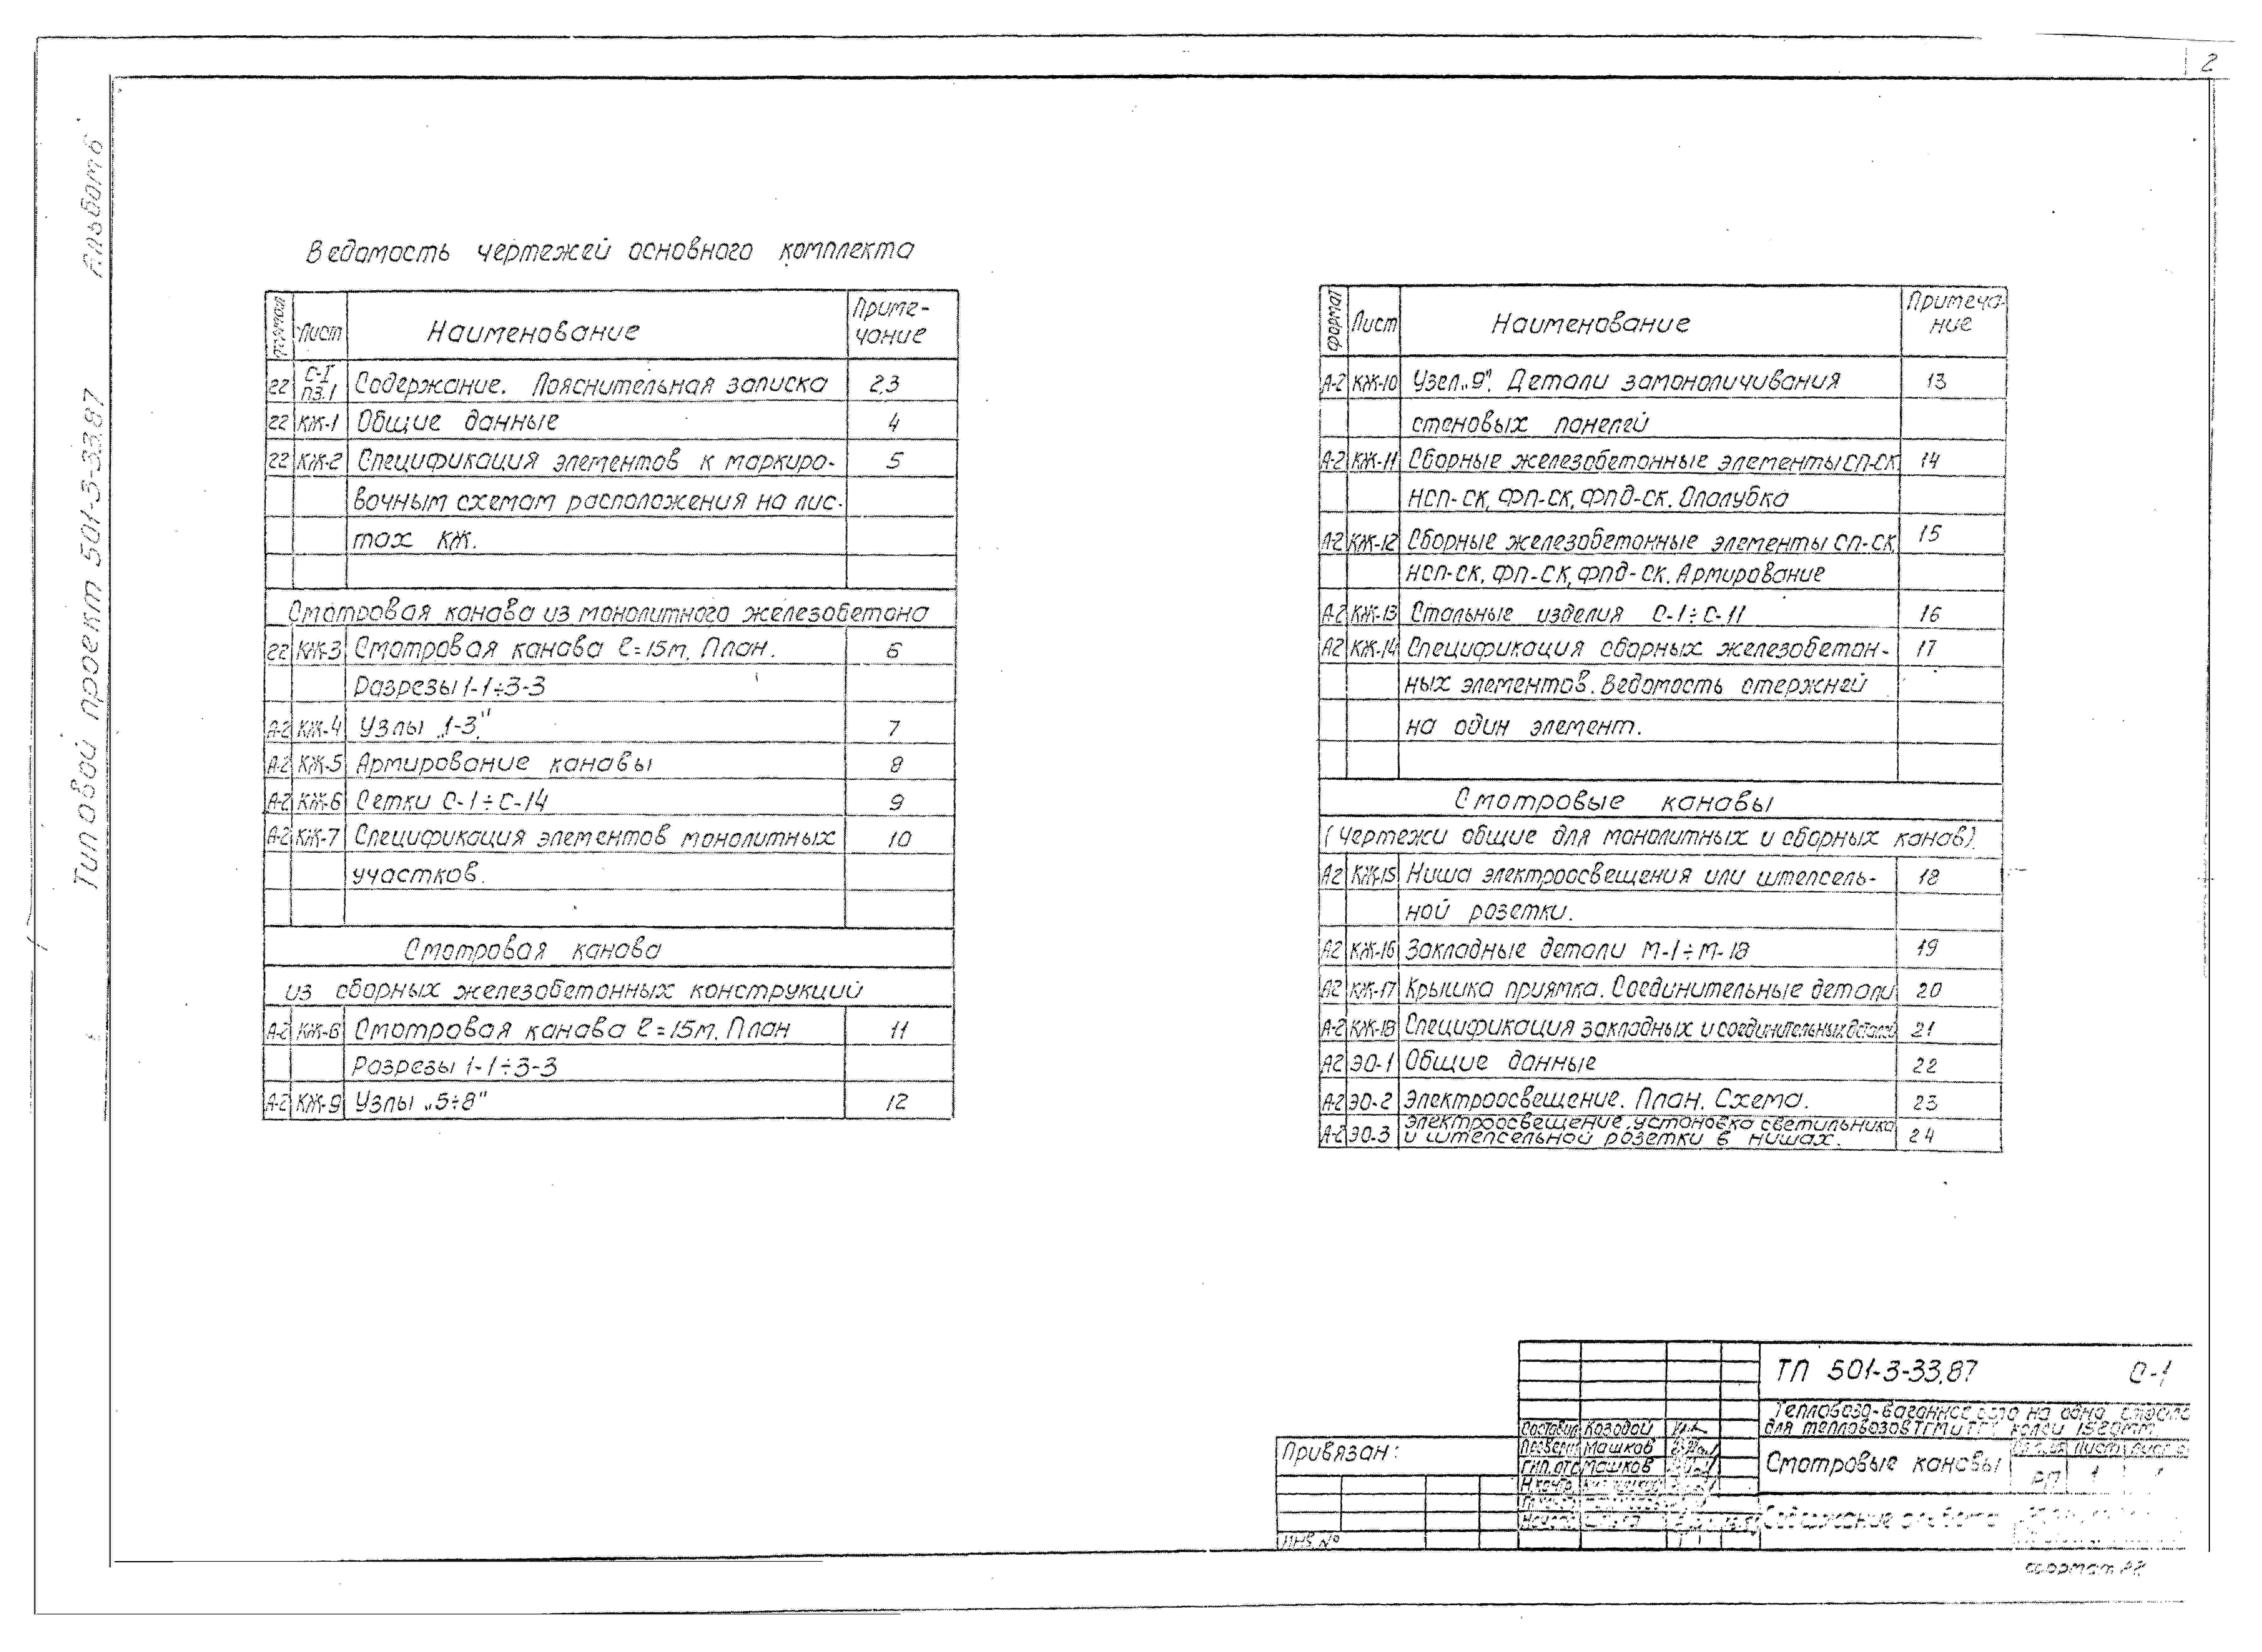 2
Альбом 6
Типовой проект 501-3-33.87
Ведомость чертежей основного комплекта
Формат Лист Наименование Приме-
чание
22 С-I
ПЗ.1 Содержание. Пояснительная записка 2,3
22 КЖ-1 Общие данные 4
22 КЖ-2 Спецификация элементов к маркиро- 5
вочным схемам расположения на лис-
тах КЖ.
Смотровая канава из монолитного железобетона
22 КЖ-3 Смотровая канава ℓ=15м. План. 6
Разрезы 1-1÷3-3
А-2 КЖ-4 Узлы „1-3." 7
А-2 КЖ-5 Армирование канавы 8
А-2 КЖ-6 Сетки С-1÷С-14 9
А-2 КЖ-7 Спецификация элементов монолитных 10
участков.
Смотровая канава
из сборных железобетонных конструкций
А-2 КЖ-8 Смотровая канава ℓ=15м. План 11
Разрезы 1-1÷3-3
А-2 КЖ-9 Узлы „5÷8" 12
Формат Лист Наименование Примеча-
ние
А-2 КЖ-10 Узел „9". Детали замоноличивания 13
стеновых панелей
А-2 КЖ-11 Сборные железобетонные элементы СП-СК 14
НСП-СК, ФП-СК, ФПД-СК. Опалубка
А-2 КЖ-12 Сборные железобетонные элементы СП-СК 15
НСП-СК, ФП-СК, ФПД-СК. Армирование
А-2 КЖ-13 Стальные изделия С-1÷С-11 16
А2 КЖ-14 Спецификация сборных железобетон- 17
ных элементов. Ведомость стержней
на один элемент.
Смотровые канавы
(Чертежи общие для монолитных и сборных канав).
А2 КЖ-15 Ниша электроосвещения или штепсель- 18
ной розетки.
А2 КЖ-16 Закладные детали М-1÷М-18 19
А2 КЖ-17 Крышка приямка. Соединительные детали 20
А-2 КЖ-18 Спецификация закладных и соединительных деталей 21
А2 ЭО-1 Общие данные 22
А-2 ЭО-2 Электроосвещение. План. Схема. 23
А-2 ЭО-3 Электроосвещение, установка светильника
и штепсельной розетки в нишах. 24
ТП 501-3-33.87 С-1
Тепловозо-вагонное депо на одно стойло
для тепловозов ТГМ и ТГК колеи 1520мм.
Составил Козодой
Проверил Машков
Гип. отд Машков
Н.контр.
Привязан:
Инв. №
Смотровые канавы
Лист
РП 1
Содержание альбома
Формат А2